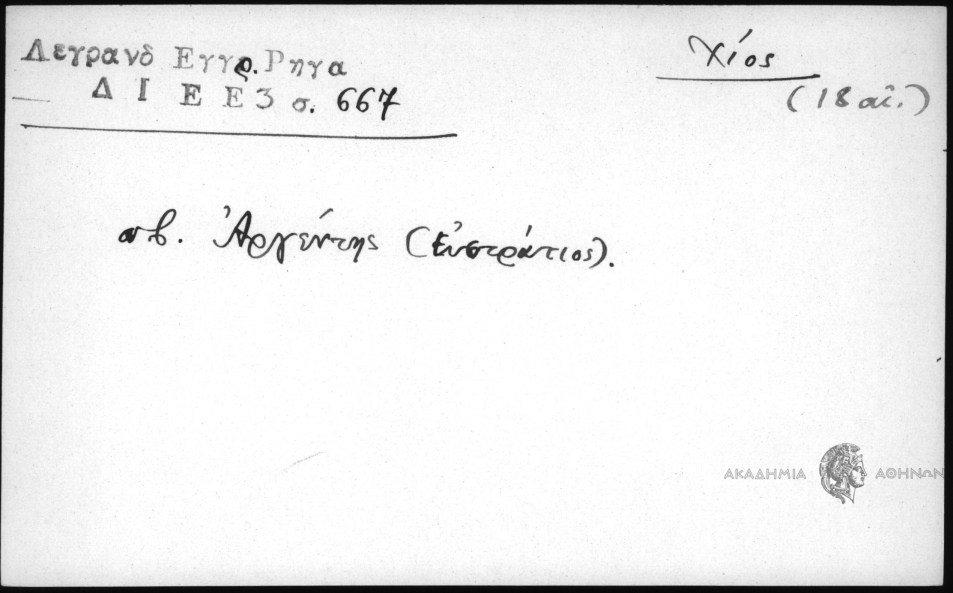 Λεγρανδ Εγγρ. Ρηγα
Δ Ι Ε Ε 3 σ. 667
Χίος
(18 αἰ.)
αβ. Ἀργέντης (Εὐστράτιος).
ΑΚΑΔΗΜΙΑ ΑΘΗΝΩΝ